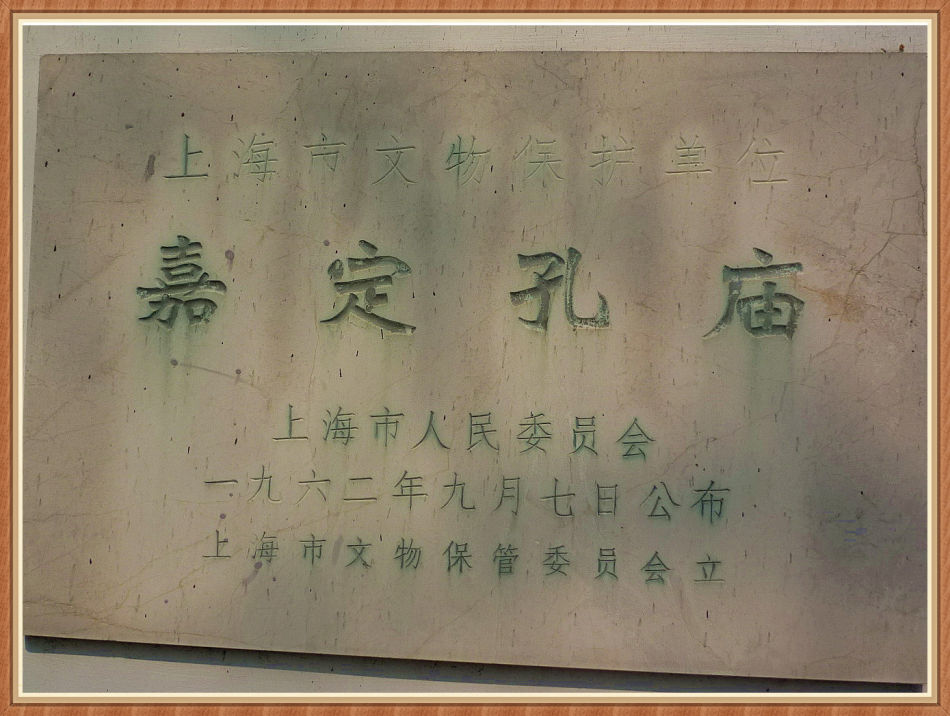 上海市文物保护单位
嘉定孔庙
上海市人民委员会
一九六二年九月七日公布
上海市文物保管委员会立